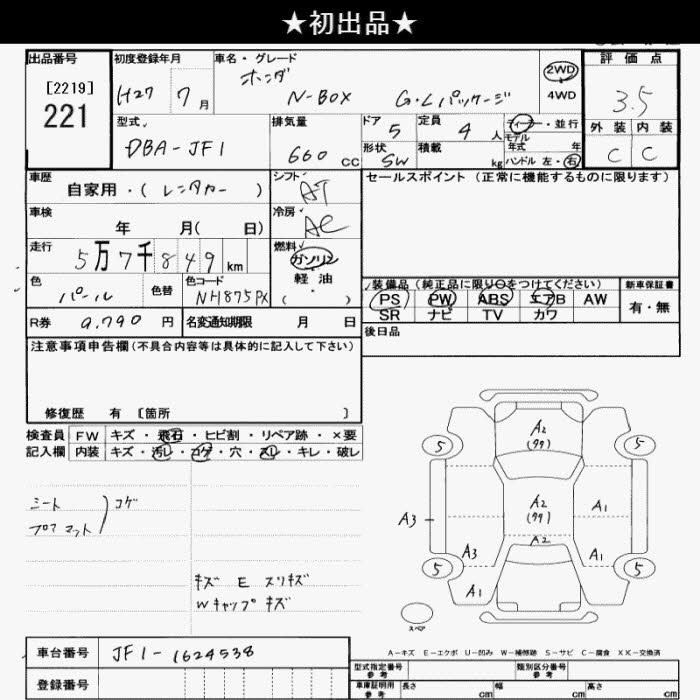 ★初出品★
出品番号
[2219]
221
初度登録年月
H27 7月
車名・グレード
ホンダ
N-BOX G・Lパッケージ
2WD
4WD
評価点
3.5
外装 内装
C C
型式
DBA-JF1
排気量
660 CC
ドア 5
定員 4 人
形状 SW
積載 kg
ディーラー・並行
モデル年式 年
ハンドル 左・右
車歴
自家用・(レンタカー)
シフト
AT
セールスポイント(正常に機能するものに限ります)
車検
年 月( 日)
冷房
AC
走行
5万7千849km
燃料
ガソリン
軽油
( )
色
パール
色替
色コード
NH875PX
装備品(純正品に限り○をつけてください)
PS PW ABS エアB AW
SR ナビ TV カワ
新車保証書
有・無
R券 9,790 円
名変通知期限 月 日
後日品
注意事項申告欄(不具合内容等は具体的に記入して下さい)
修復歴 有 [箇所 ]
検査員記入欄
FW キズ・飛石・ヒビ割・リペア跡・×要
内装 キズ・汚レ・コゲ・穴・スレ・キレ・破レ
シート
フロアマット
コゲ
キズ E スリキズ
Wキャップキズ
A2
5
5
A2
A1
A3
A2
A3
A1
5
5
A1
スペア
A-キズ E-エクボ U-凹み W-補修跡 S-サビ C-腐食 XX-交換済
車台番号
JF1-1624538
登録番号
型式指定番号
参考
類別区分番号
参考
車庫証明用
参考
長さ cm
幅 cm
高さ cm